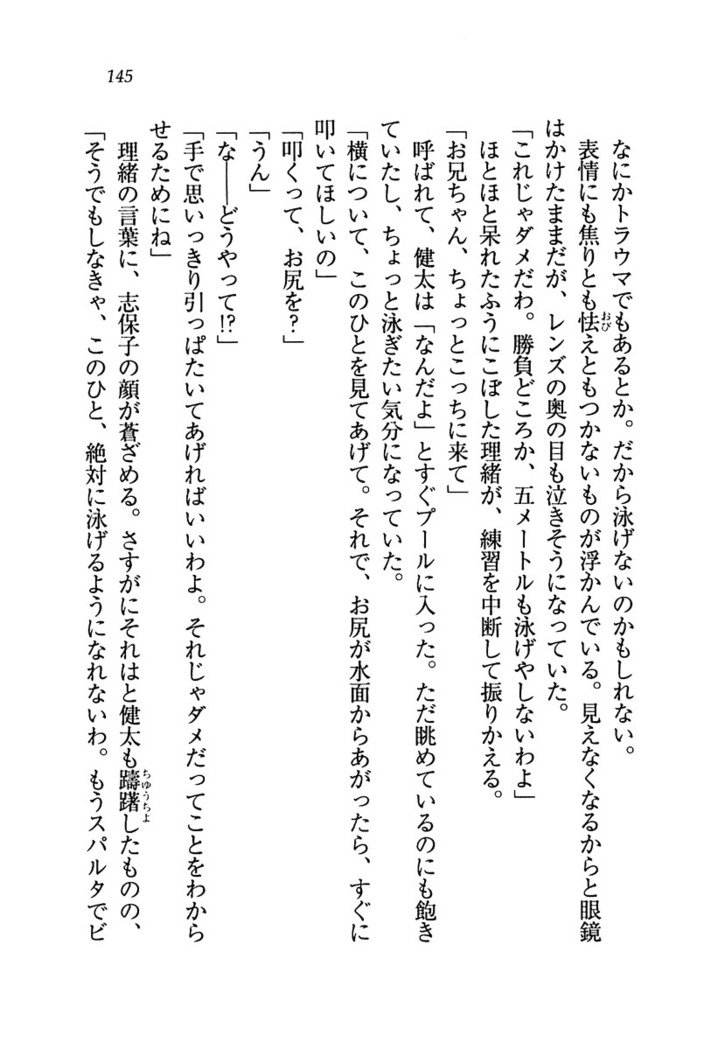 145
なにかトラウマでもあるとか。だから泳げないのかもしれない。
表情にも焦りとも怯えともつかないものが浮かんでいる。見えなくなるからと眼鏡
はかけたままだが、レンズの奥の目も泣きそうになっていた。
「これじゃダメだわ。勝負どころか、五メートルも泳げやしないわよ」
ほとほと呆れたふうにこぼした理緒が、練習を中断して振りかえる。
「お兄ちゃん、ちょっとこっちに来て」
呼ばれて、健太は「なんだよ」とすぐプールに入った。ただ眺めているのにも飽き
ていたし、ちょっと泳ぎたい気分になっていた。
「横について、このひとを見てあげて。それで、お尻が水面からあがったら、すぐに
叩いてほしいの」
「叩くって、お尻を?」
「うん」
「な――どうやって!?」
「手で思いっきり引っぱたいてあげればいいわよ。それじゃダメだってことをわから
せるためにね」
理緒の言葉に、志保子の顔が蒼ざめる。さすがにそれはと健太も躊躇したものの、
「そうでもしなきゃ、このひと、絶対に泳げるようになれないわ。もうスパルタでビ